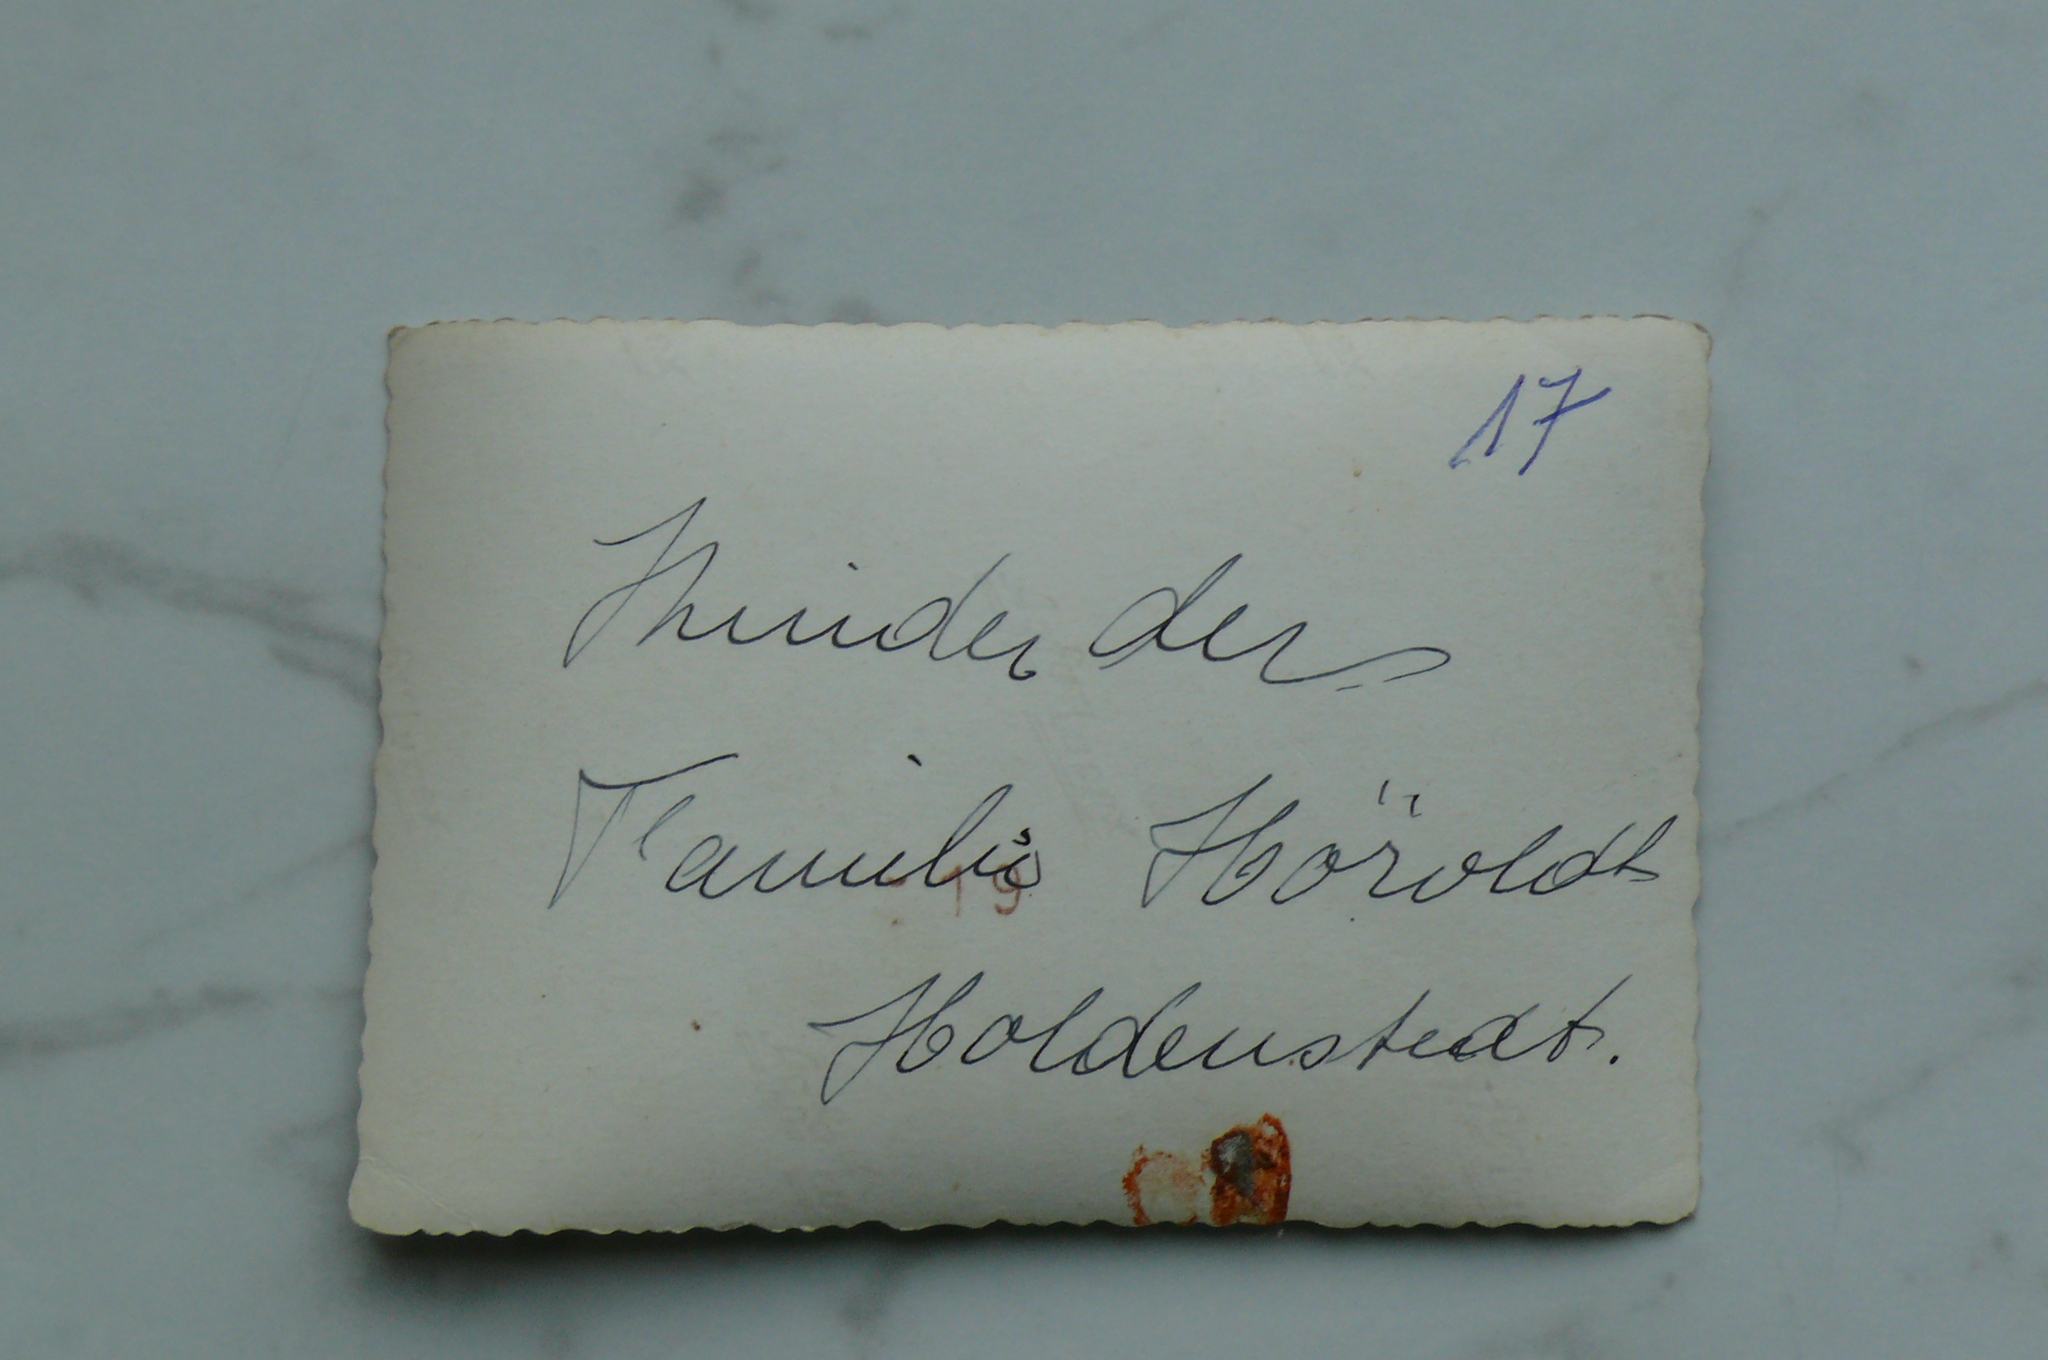 17
Kinder der
Familie Höroldt
- 19
Holdenstedt.